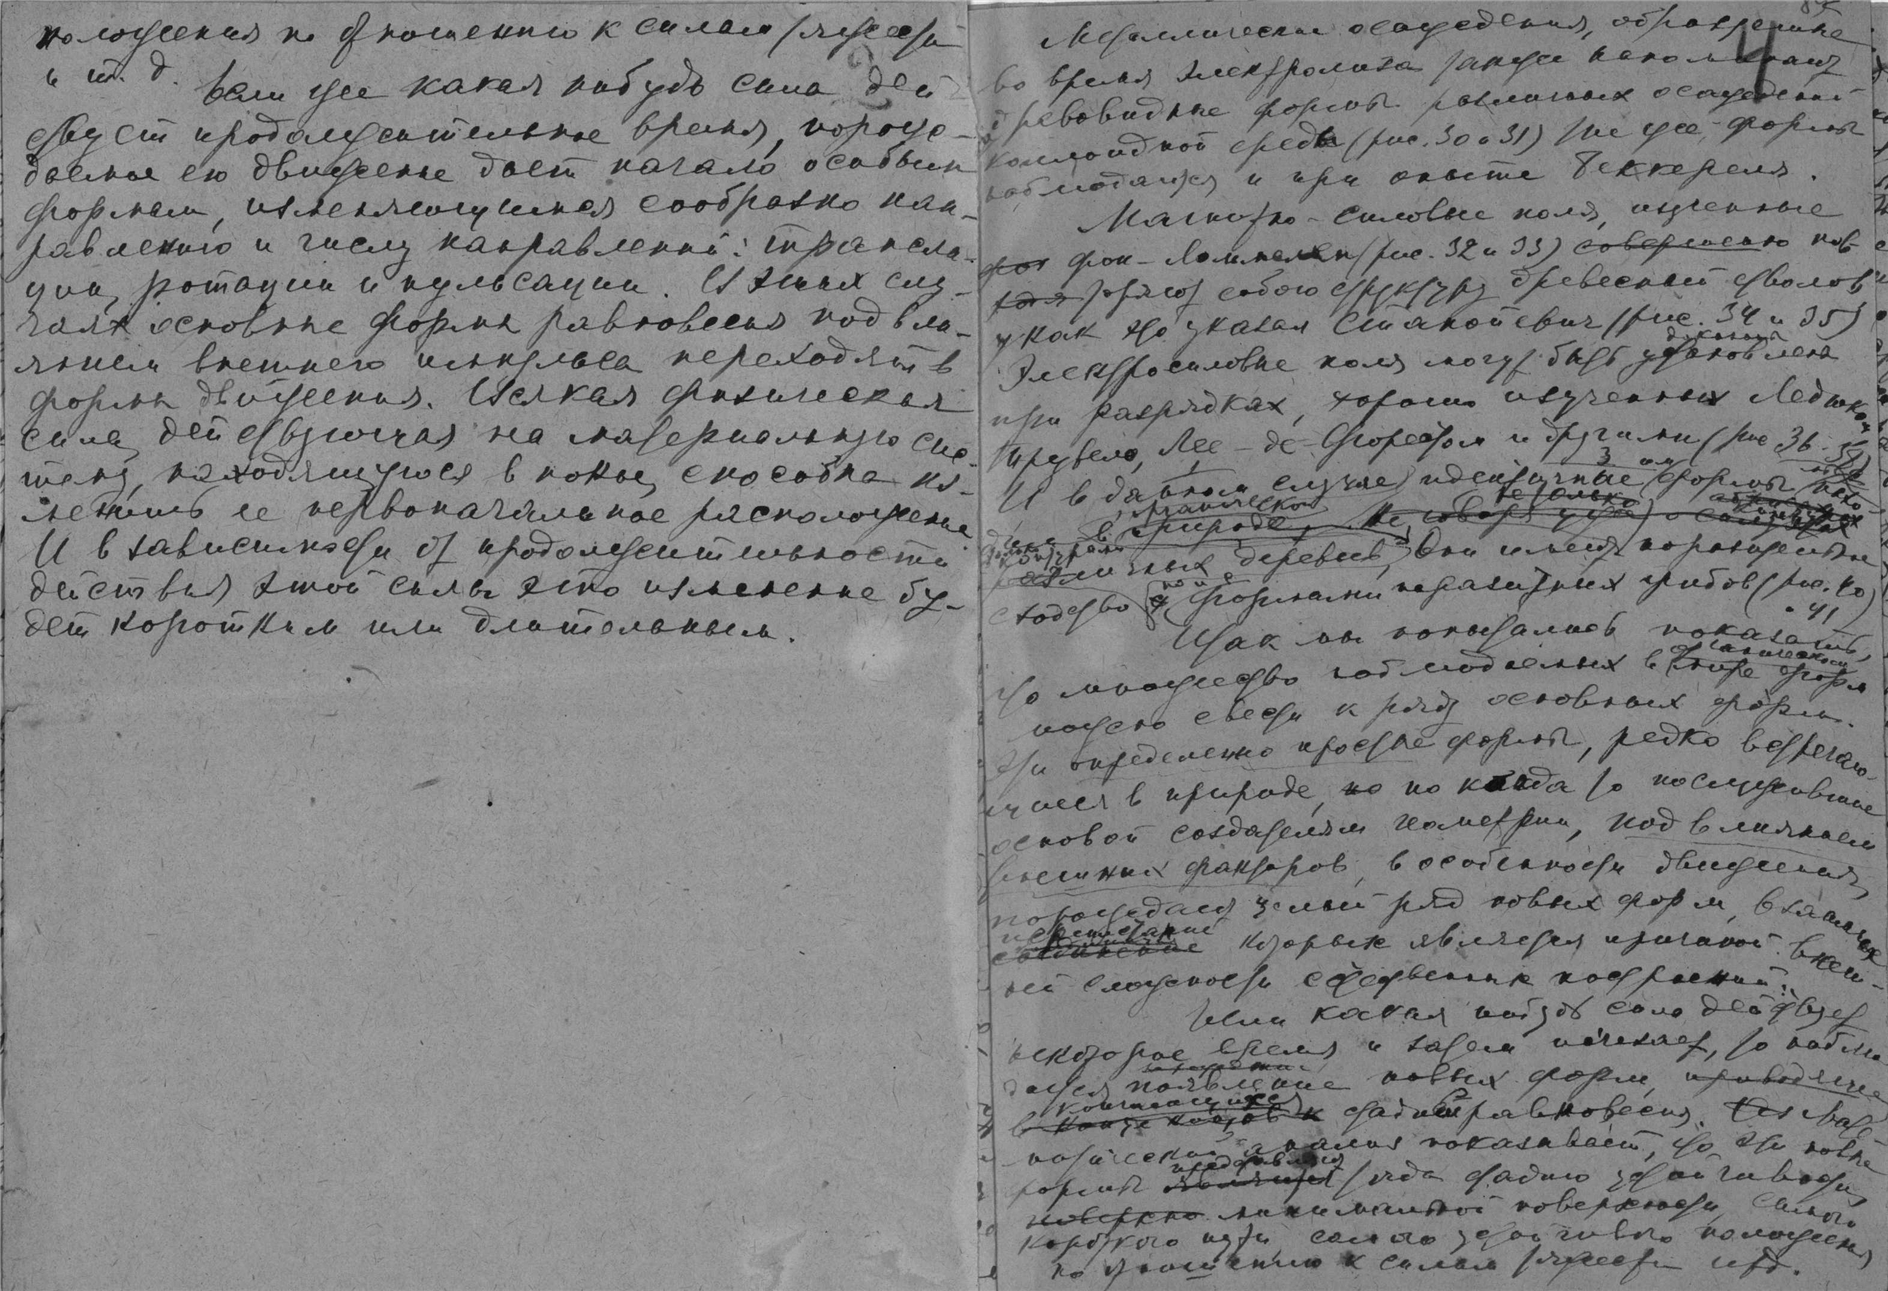 положения по отношению к силам тяжести
и т. д.
Если же какая нибудь сила дей-
ствует продолжительное время, порож-
даемое ею движение дает начало особым
формам, изменяющимся сообразно нап-
равлению и числу направлений: трансля-
ции, ротации и пульсации. В этих слу-
чаях основные формы равновесия под вли-
янием внешнего импульса переходят в
формы движения. Всякая физическая
сила, действующая на материальную сис-
тему, находящуюся в покое, способна из-
менить ее первоначальное расположение
И в зависимости от продолжительности
действия этой силы это изменение бу-
дет коротким или длительным.
4
Металлические осаждения, образуемые
во время электролиза также напоминают
древовидные формы различных осаждений
коллоидной среды (рис. 30 и 31) Те же формы
наблюдаются и при опыте Беккереля.
Магнитно-силовые поля, изученные
фон-Ломмелем (рис. 32 и 33) совершенно пов-
торяют собою структуру древесных стволов
как это указал Станоевич (рис. 34 и 35)
Электросиловые поля могут быть установлены
при разрядках, хорошо изученных Ледюком
Трувело, Лее-де-Форестом и другими (рис 36
И в данном случае идентичные формы
органической
в природе. Не говоря уже о
различных деревьев, Они имеют поразительное
сходство с формами паразитных грибов (рис. 40
и 41)
Так мы попытались показать,
что множество наблюдаемых в мире форм
можно свести к ряду основных форм.
Эти определенно простые формы, редко встречаю-
щиеся в природе, но когда то послужившие
основой создателям геометрии, под влиянием
внешних факторов, в особенности движения,
порождают целый ряд новых форм,
которых является причиной внеш-
ней сложности естественных построений.
Если какая нибудь сила действует
некоторое время и затем исчезает, то наблю-
дается появление новых форм, приводящее
в конце концов к стадии равновесия.
анализ показывает, что эти новые
формы являются стадию устойчивости,
минимальной поверхности, самого
короткого пути самого устойчивого положения
по отношению к силам тяжести и т.д.